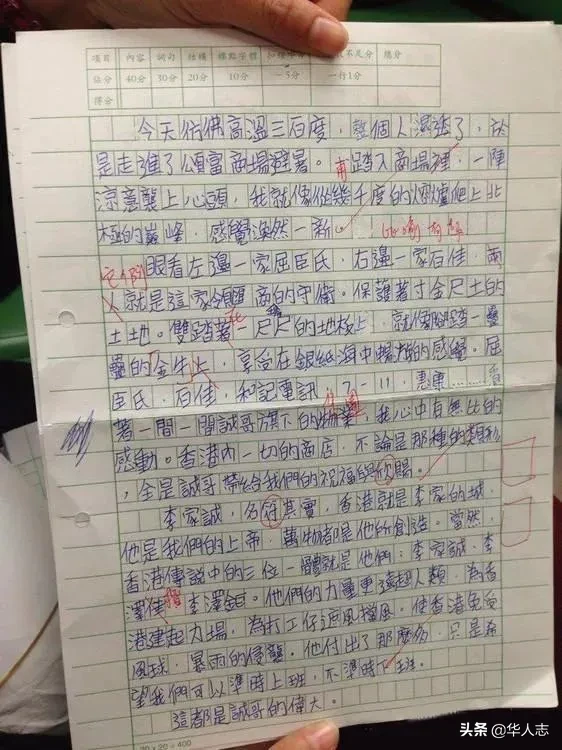 項目 內容 詞句 結構 標點字體 總分
佔分 40分 30分 20分 10分 －5分 一行1分
得分
今天仿佛高溫三百度，整個人濕透了，於
是走進了頌富商場避暑。甫踏入商場裡，一陣
涼意襲上心頭，我就像從幾千度的熔爐爬上北
極的巔峰，感覺渙然一新。
它們
眼看左邊一家屈臣氏，右邊一家百佳，兩
人就是這家領匯商的守衛。保護著寸金尺土的
土地。雙踏著一尺尺的地板上，就像腳踏一疊
疊的金牛上，享受在銀紙海中暢泳的感覺。屈
臣氏，百佳，和記電訊，7-11，惠康………看
著一間一間誠哥旗下的物業，我心中有無比的
感動。香港內一切的商店，不論是那種的類別
，全是誠哥帶給我們的祝福與欣賜。
李家誠，名符其實，香港就是李家的城，
他是我們的上帝，萬物都是他所創造。當然，
香港傳說中的三位一體就是他們：李家誠、李
澤楷、李澤鉅。他們的力量更遠超人類，為香
港建起力場，為打工仔遮風擋風。使香港免受
風球，暴雨的侵襲。他付出了那麼多，只是希
望我們可以準時上班，不準時下班。
這都是誠哥的偉大。
20×20=400
头条 @华人志